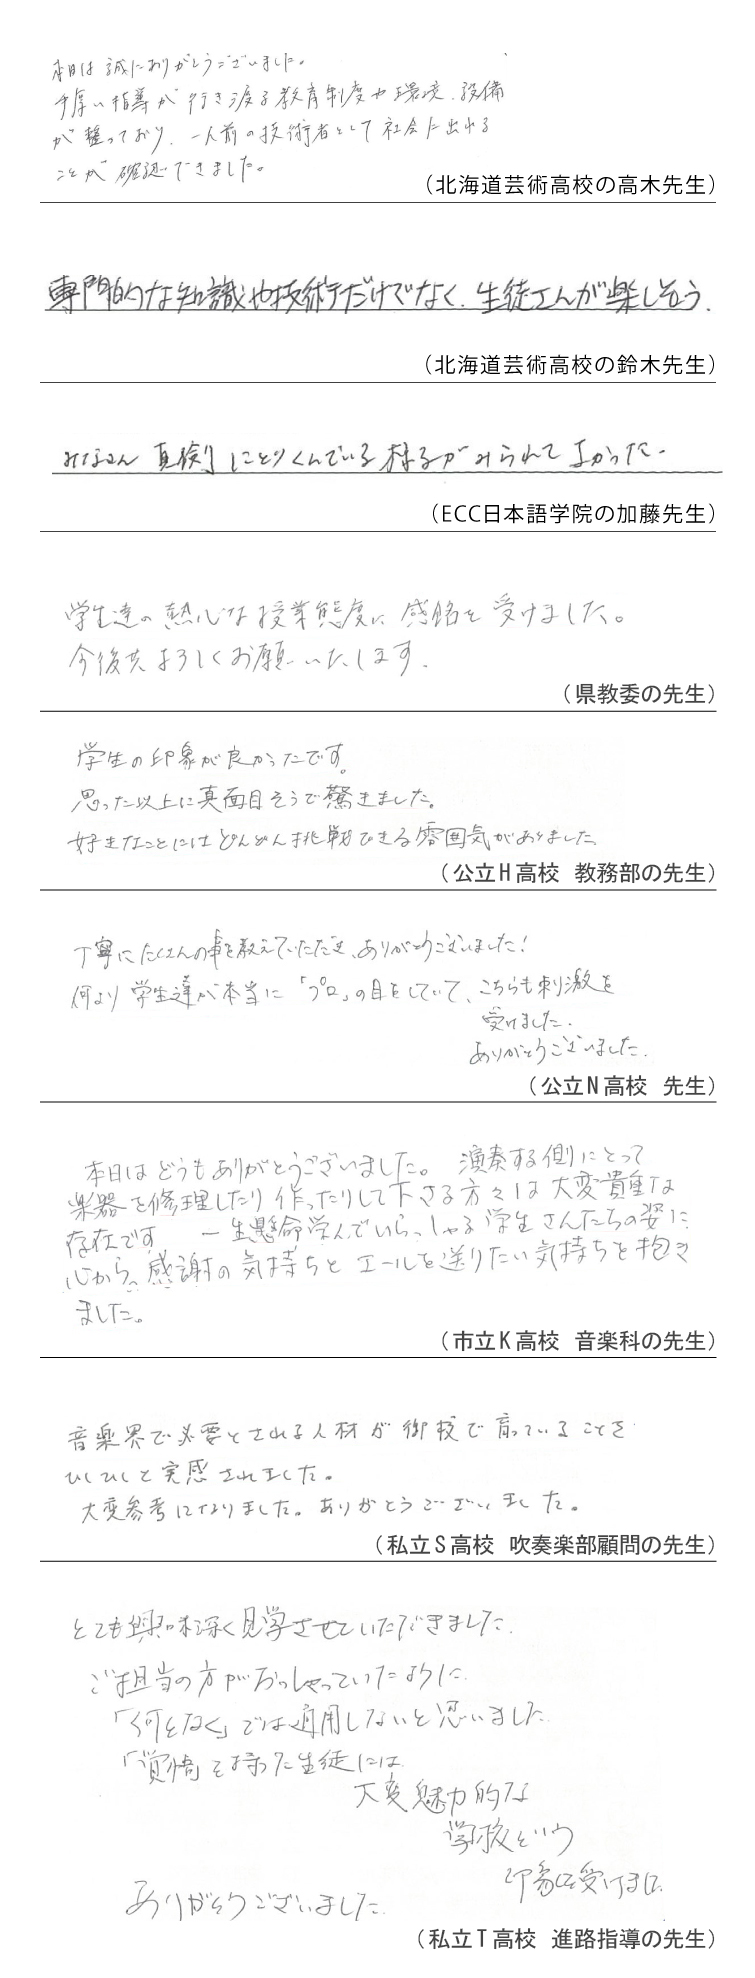 本日は誠にありがとうございました。
手厚い指導が行き渡る教育制度や環境、設備
が整っており、一人前の技術者として社会に出れる
ことが確認できました。
（北海道芸術高校の高木先生）
専門的な知識や技術だけでなく、生徒さんが楽しそう.
（北海道芸術高校の鈴木先生）
みなさん真剣にとりくんでいる様子がみられてよかった.
（ECC日本語学院の加藤先生）
学生達の熱心な授業態度に感銘を受けました。
今後共よろしくお願いいたします.
（県教委の先生）
学生の印象が良かったです。
思った以上に真面目そうで驚きました。
好きなことにはどんどん挑戦できる雰囲気がありました
（公立H高校 教務部の先生）
丁寧にたくさんの事を教えていただき、ありがとうございました！
何より学生達が本当に「プロ」の目をしていて、こちらも刺激を
受けました.
ありがとうございました.
（公立N高校 先生）
本日はどうもありがとうございました。 演奏する側にとって
楽器を修理したり作ったりして下さる方々は大変貴重な
存在です 一生懸命学んでいらっしゃる学生さんたちの姿に
心から感謝の気持ちとエールを送りたい気持ちを抱き
ました。
（市立K高校 音楽科の先生）
音楽界で必要とされる人材が御校で育っていることを
ひしひしと実感されました。
大変参考になりました。ありがとうございました。
（私立S高校 吹奏楽部顧問の先生）
とても興味深く見学させていただきました.
ご担当の方がおっしゃっていたように
「何となく」では通用しないと思いました
「覚悟」を持った生徒には
大変魅力的な
学校という
印象を受けました
ありがとうございました.
（私立T高校 進路指導の先生）